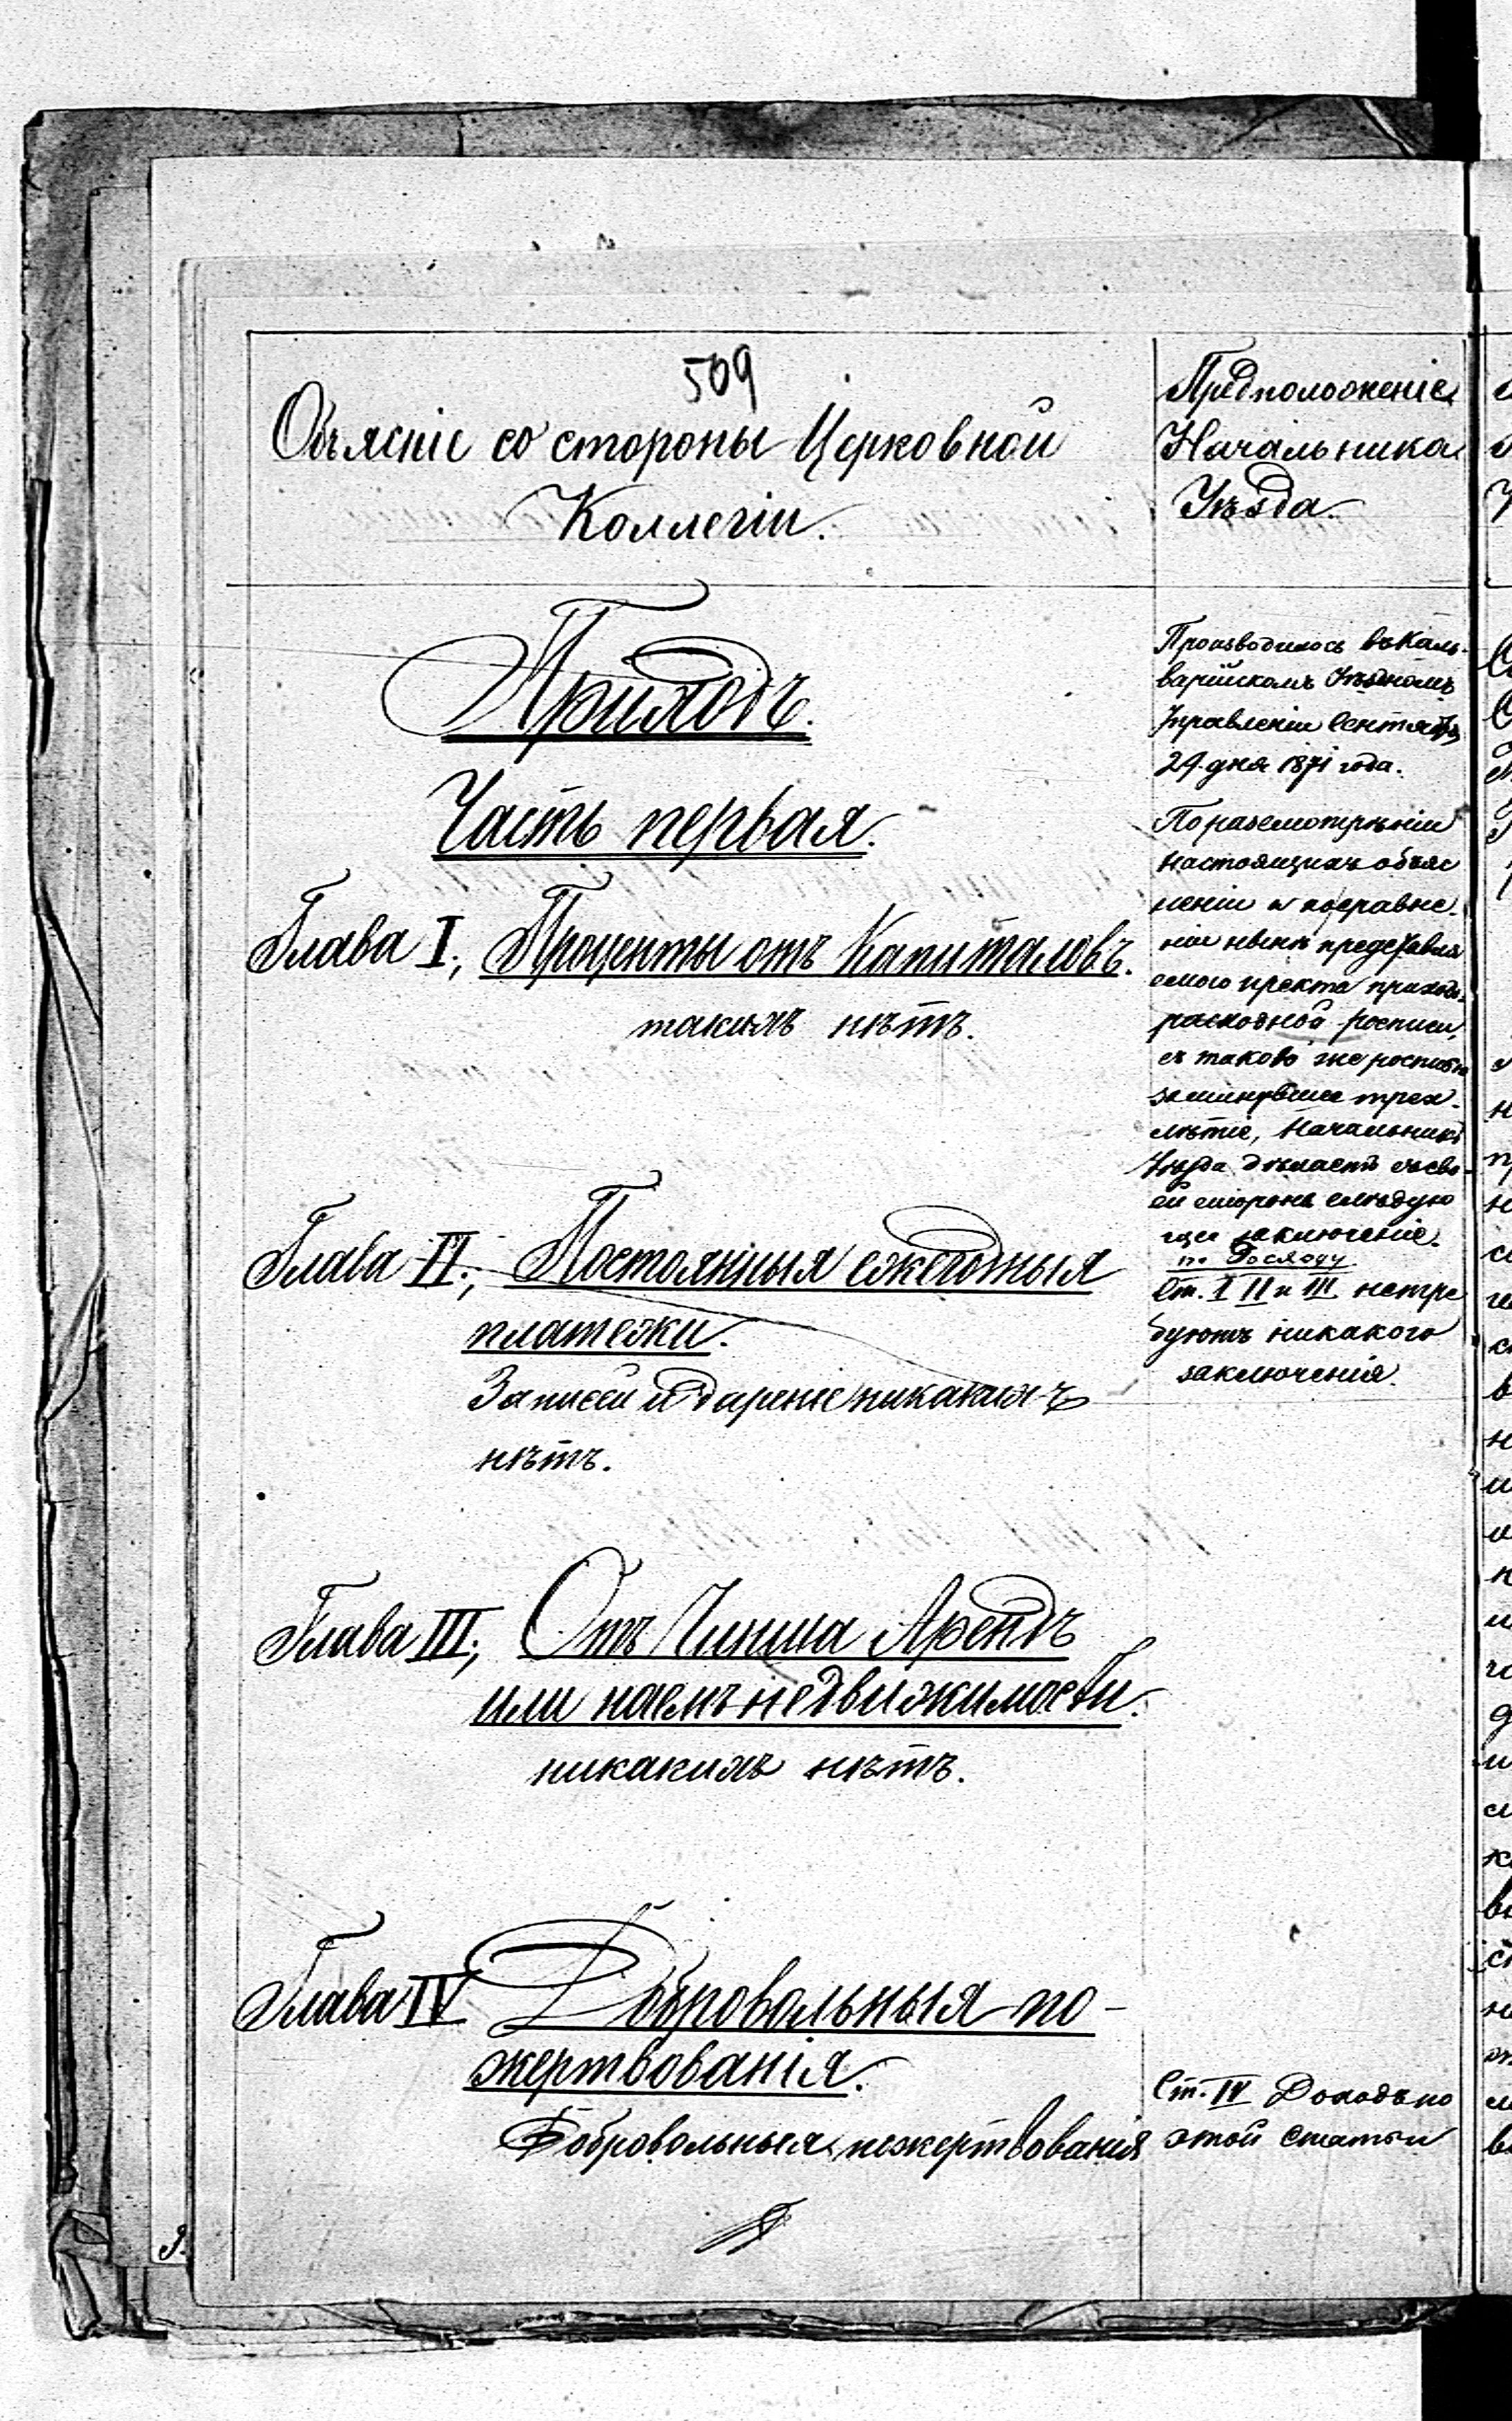 509
Объясніе со стороны Церковной
Коллегіи.
Предположеніе
Начальника
Уѣзда.
Приходъ.
Часть первая.
Глава I; Проценты отъ Капиталовъ.
такихъ нѣтъ.
Глава II; Постоянныя ежегодныя
платежи.
Записей и дареніе никакихъ
нѣтъ.
Глава III; Отъ Чинша Арендъ
или наемъ недвижимости.
никакихъ нѣтъ.
Глава IV Добровольныя по-
жертвованія.
Добровольныя пожертвованія
Производилось въ Каль-
варійскомъ Уѣздномъ
Управленіи Сентября
29 дня 1871 года.
По разсмотрѣніи
настоящихъ объяс
неніи и по сравне-
ніи нынѣ представля
емого пректа приходо-
расходной росписи,
съ таково же росписью
за минувшее трех-
лѣтіе, Начальникъ
Уѣзда дѣлаетъ съ сво-
ей стороны слѣдую
щее заключеніе.
по Доходу
Ст. I II и III нетре
буютъ никакого
заключенія.
Ст. IV Доходъ по
этой статьи